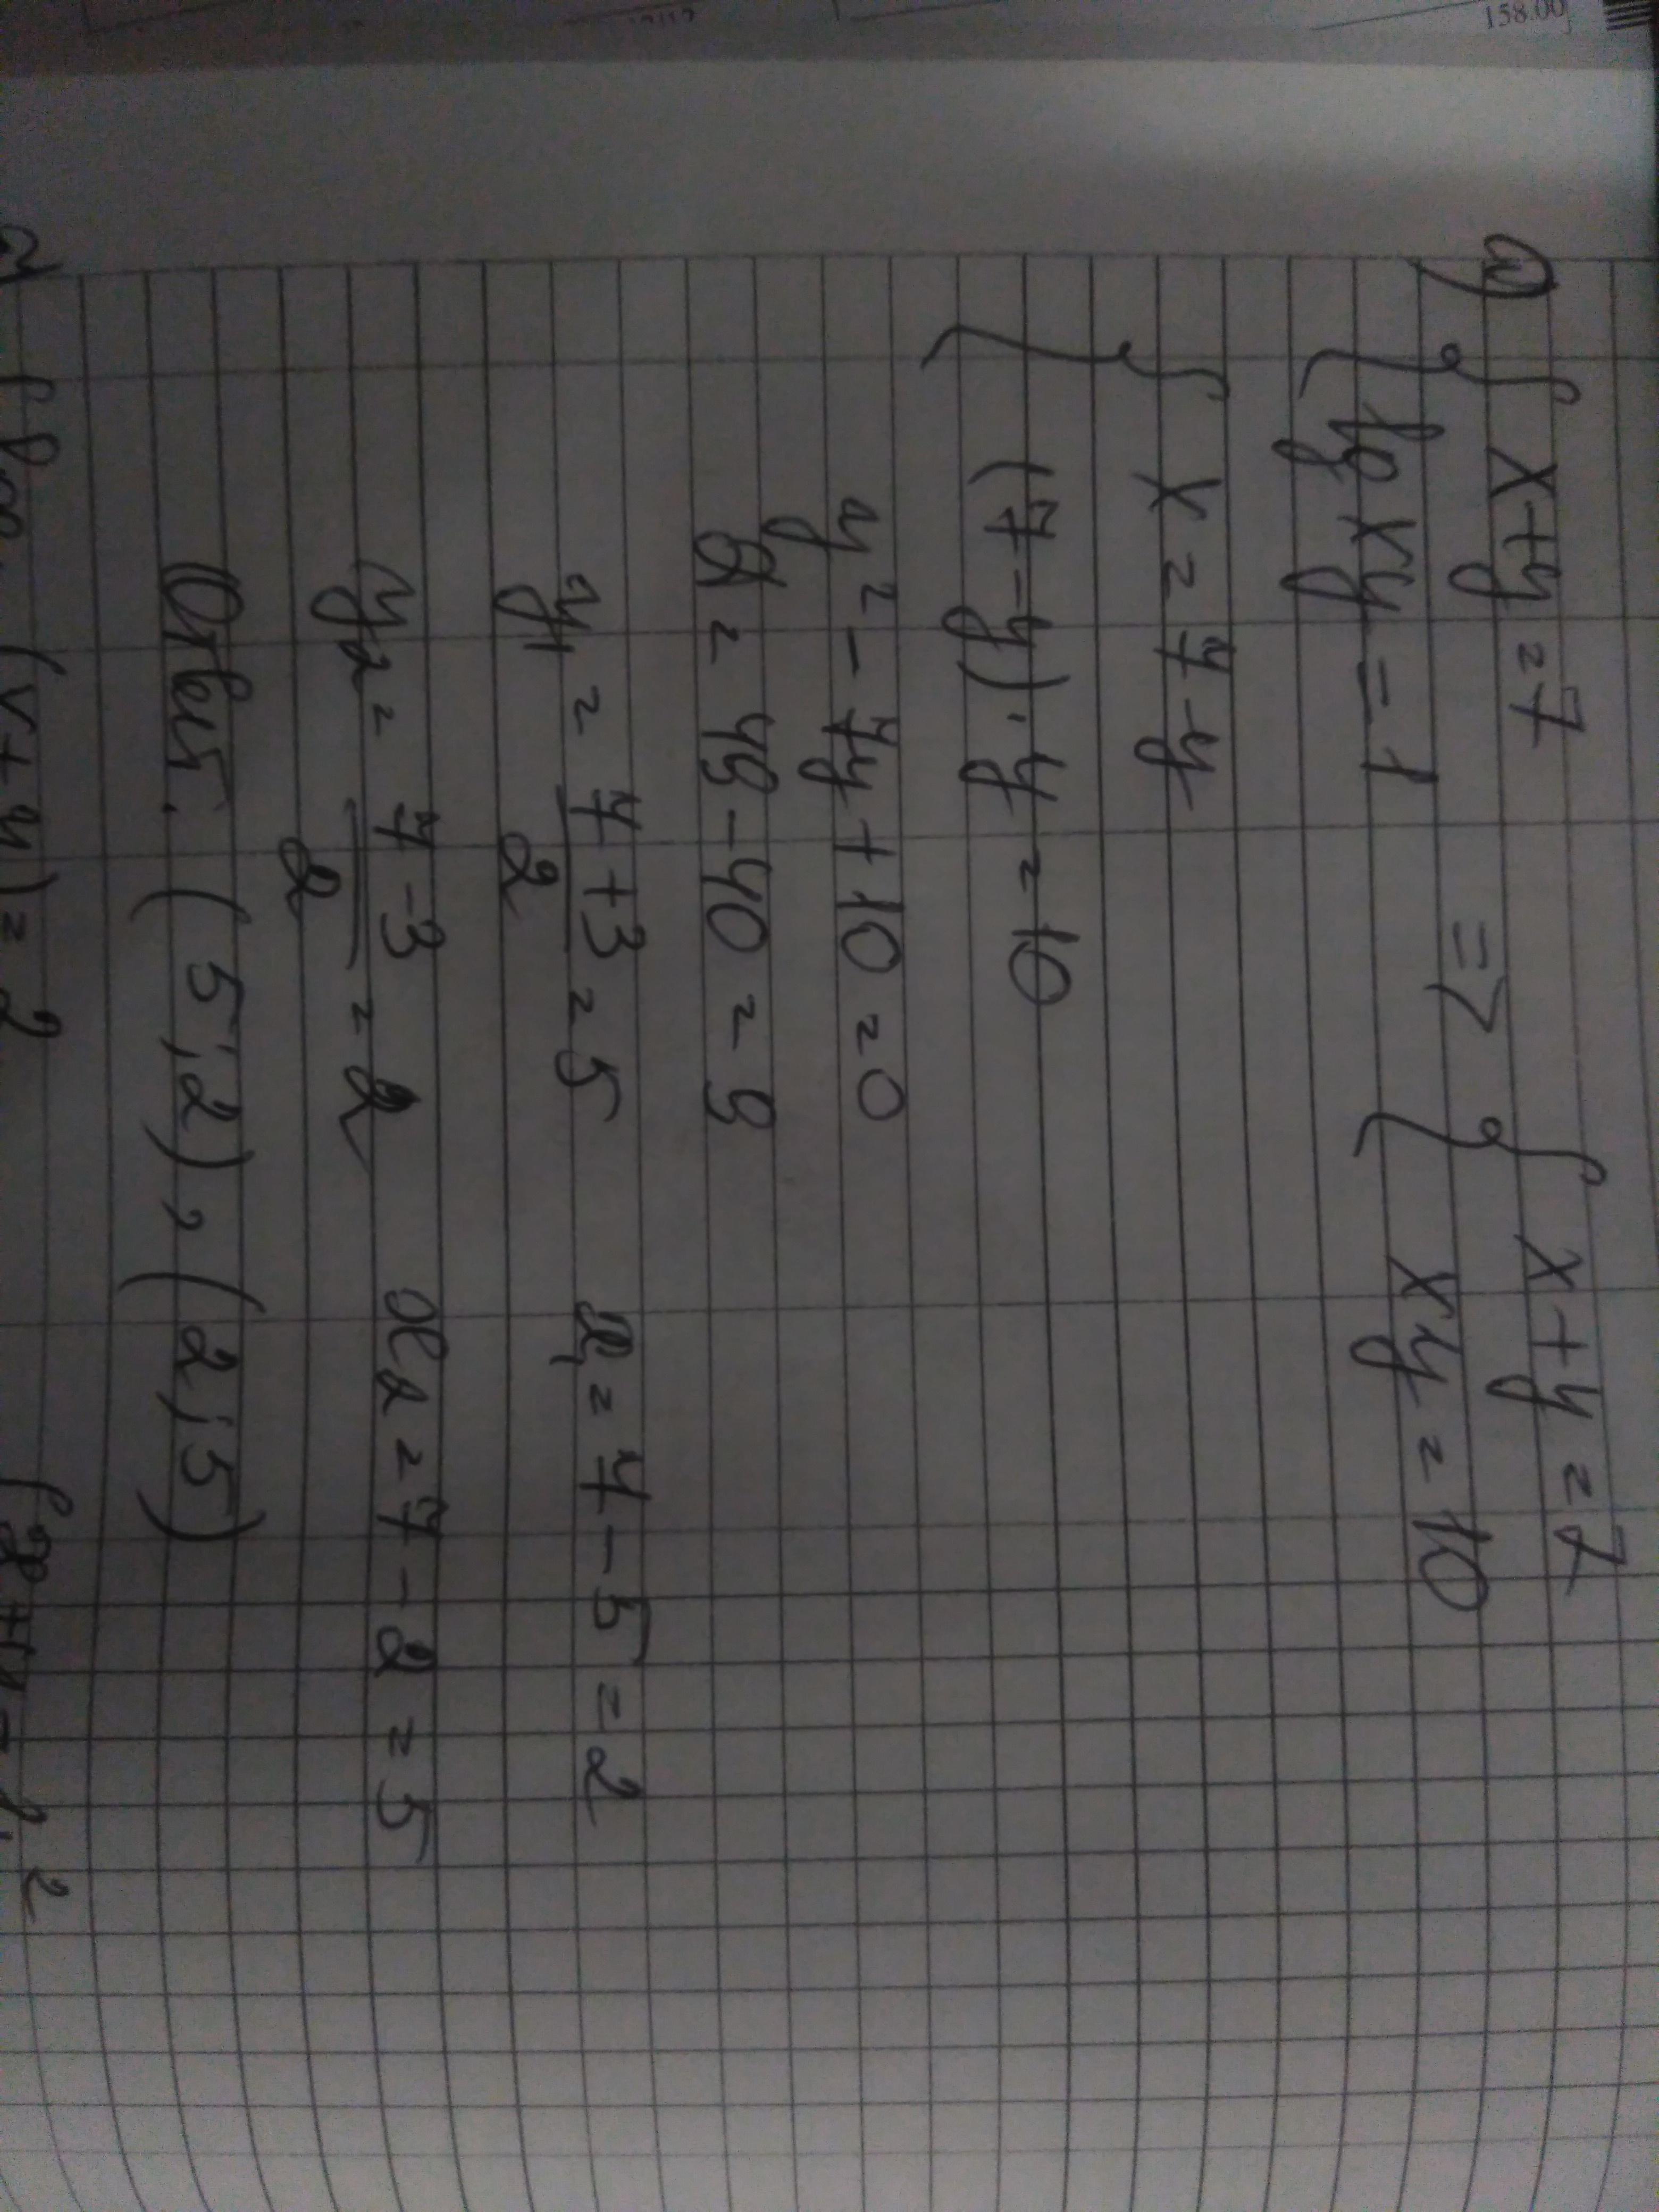 158.00
а) { x+y=7 => { x+y=7
{ lg xy = 1 { xy = 10
{ x = 7-y
{ (7-y)·y = 10
y² - 7y + 10 = 0
D = 49 - 40 = 9
y₁ = (7+3)/2 = 5 x₁ = 7-5 = 2
y₂ = (7-3)/2 = 2 x₂ = 7-2 = 5
Ответ: (5;2), (2;5)
(x+y) = 2